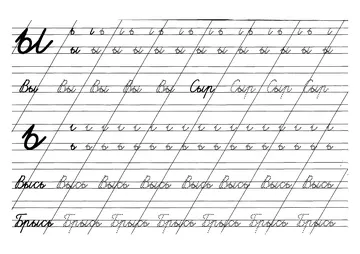 ы
Вы Вы Вы Вы Вы Сыр Сыр Сыр Сыр
ь
Высь Высь Высь Высь Высь Высь Высь Высь
Брысь Брысь Брысь Брысь Брысь Брысь Брысь